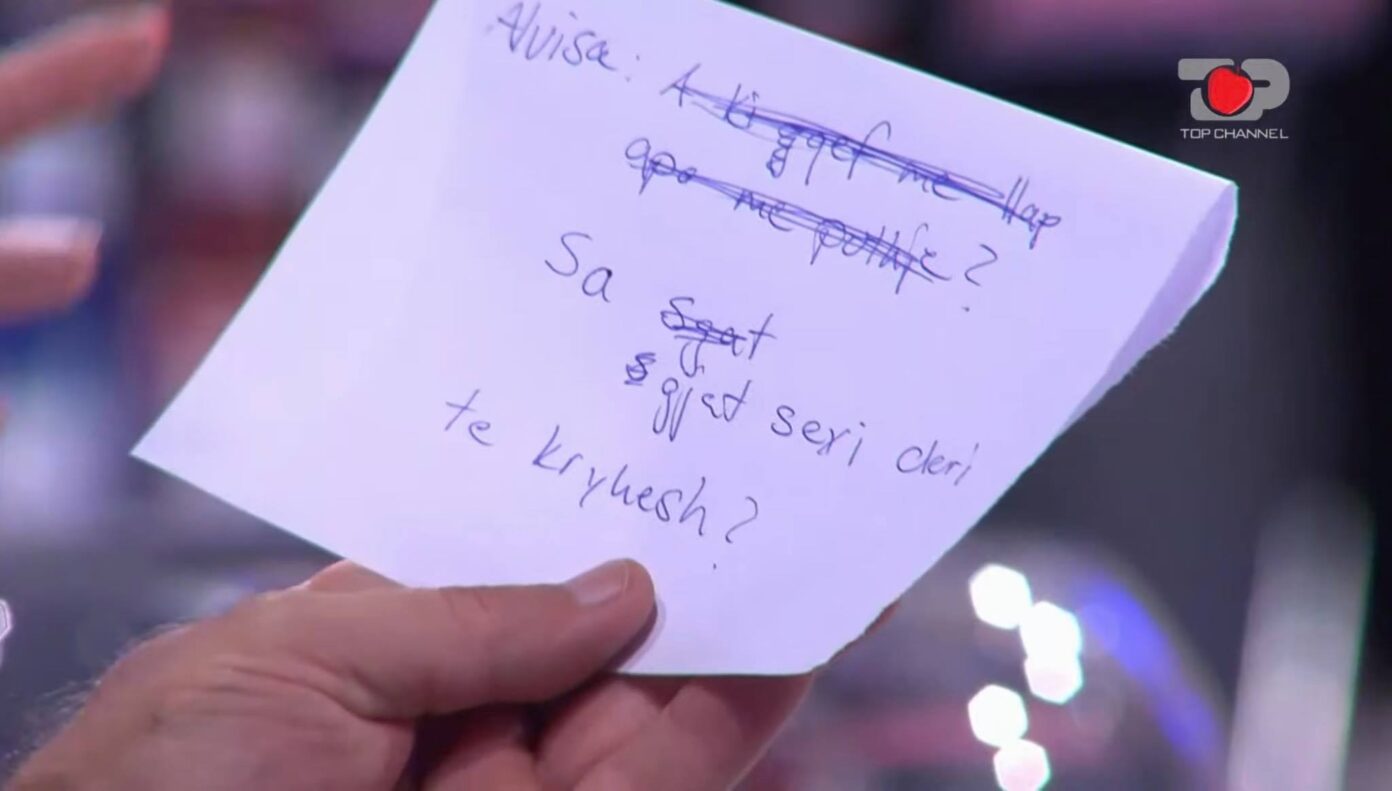 Alvisa: A ki qejf me llap
apo me puthje?
Sa sgjat
gjat sexi deri
te kryhesh?
TOP CHANNEL